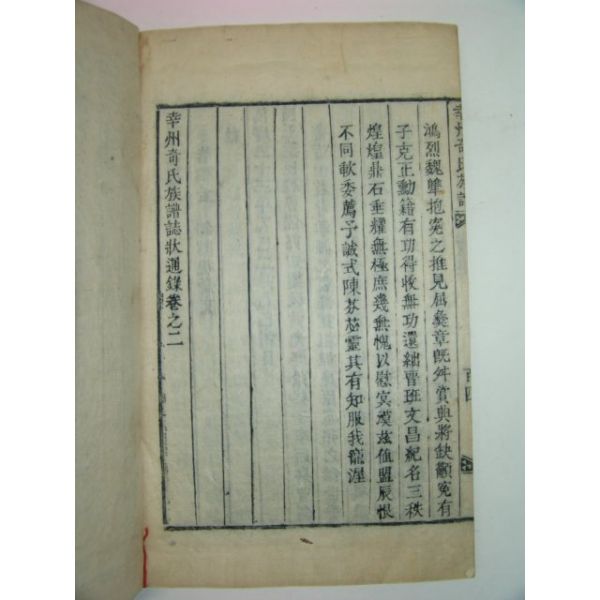 幸州奇氏族譜
鴻烈魏 抱寃之推見屈彝章旣舛賞典將缺顧寃有
子克正勳籍有功得收無功還絀曹班文昌紀名三秩
煌煌鼎石垂耀無極庶幾無愧以慰冥漠玆値盟辰恨
不同歃委薦予誠式陳芬苾靈其有知服我寵渥
幸州奇氏族譜誌狀通錄卷之二